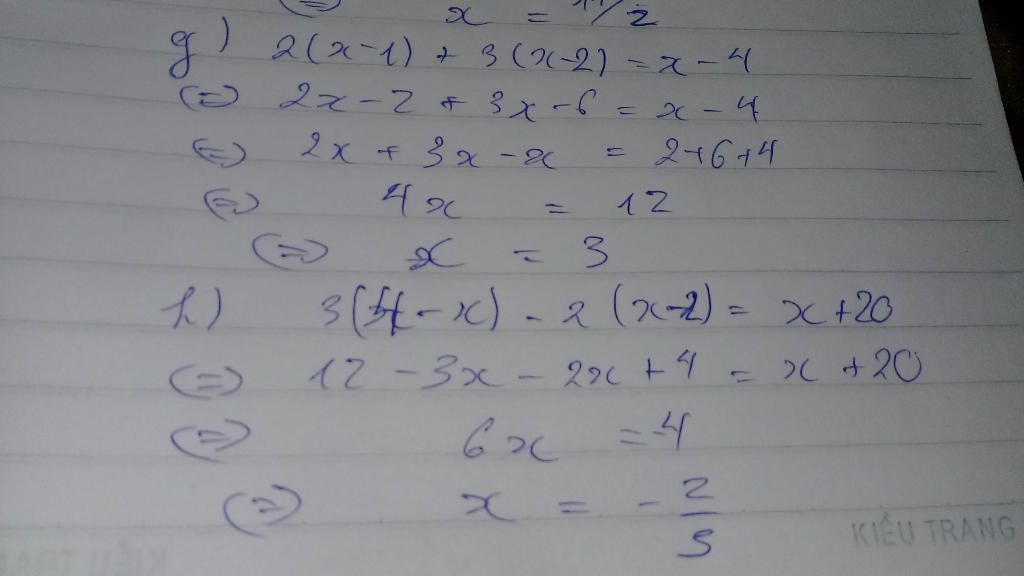 (=) x = 11/2
g) 2(x-1) + 3(x-2) = x - 4
(=) 2x - 2 + 3x - 6 = x - 4
(=) 2x + 3x - x = 2+6+4
(=) 4x = 12
(=) x = 3
h) 3(4 - x) - 2 (x-2) = x + 20
(=) 12 - 3x - 2x + 4 = x + 20
(=) 6x = -4
(=) x = - 2/3
KIỀU TRANG